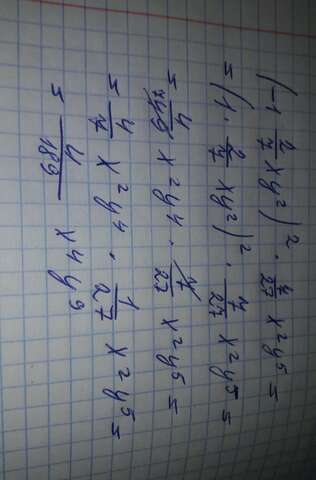 (-1 2/7 xy²)² · 7/27 x²y⁵ =
= (1 · 2/7 xy²)² · 7/27 x²y⁵ =
= 4/49 x²y⁴ · 7/27 x²y⁵ =
= 4/7 x²y⁴ · 1/27 x²y⁵ =
= 4/189 x⁴y⁹